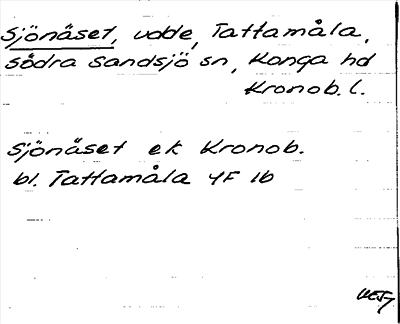 Sjönäset, udde, Tattamåla,
södra Sandsjö sn, Konga hd
Kronob. l.
Sjönäset ek Kronob.
bl. Tattamåla 4F 1b